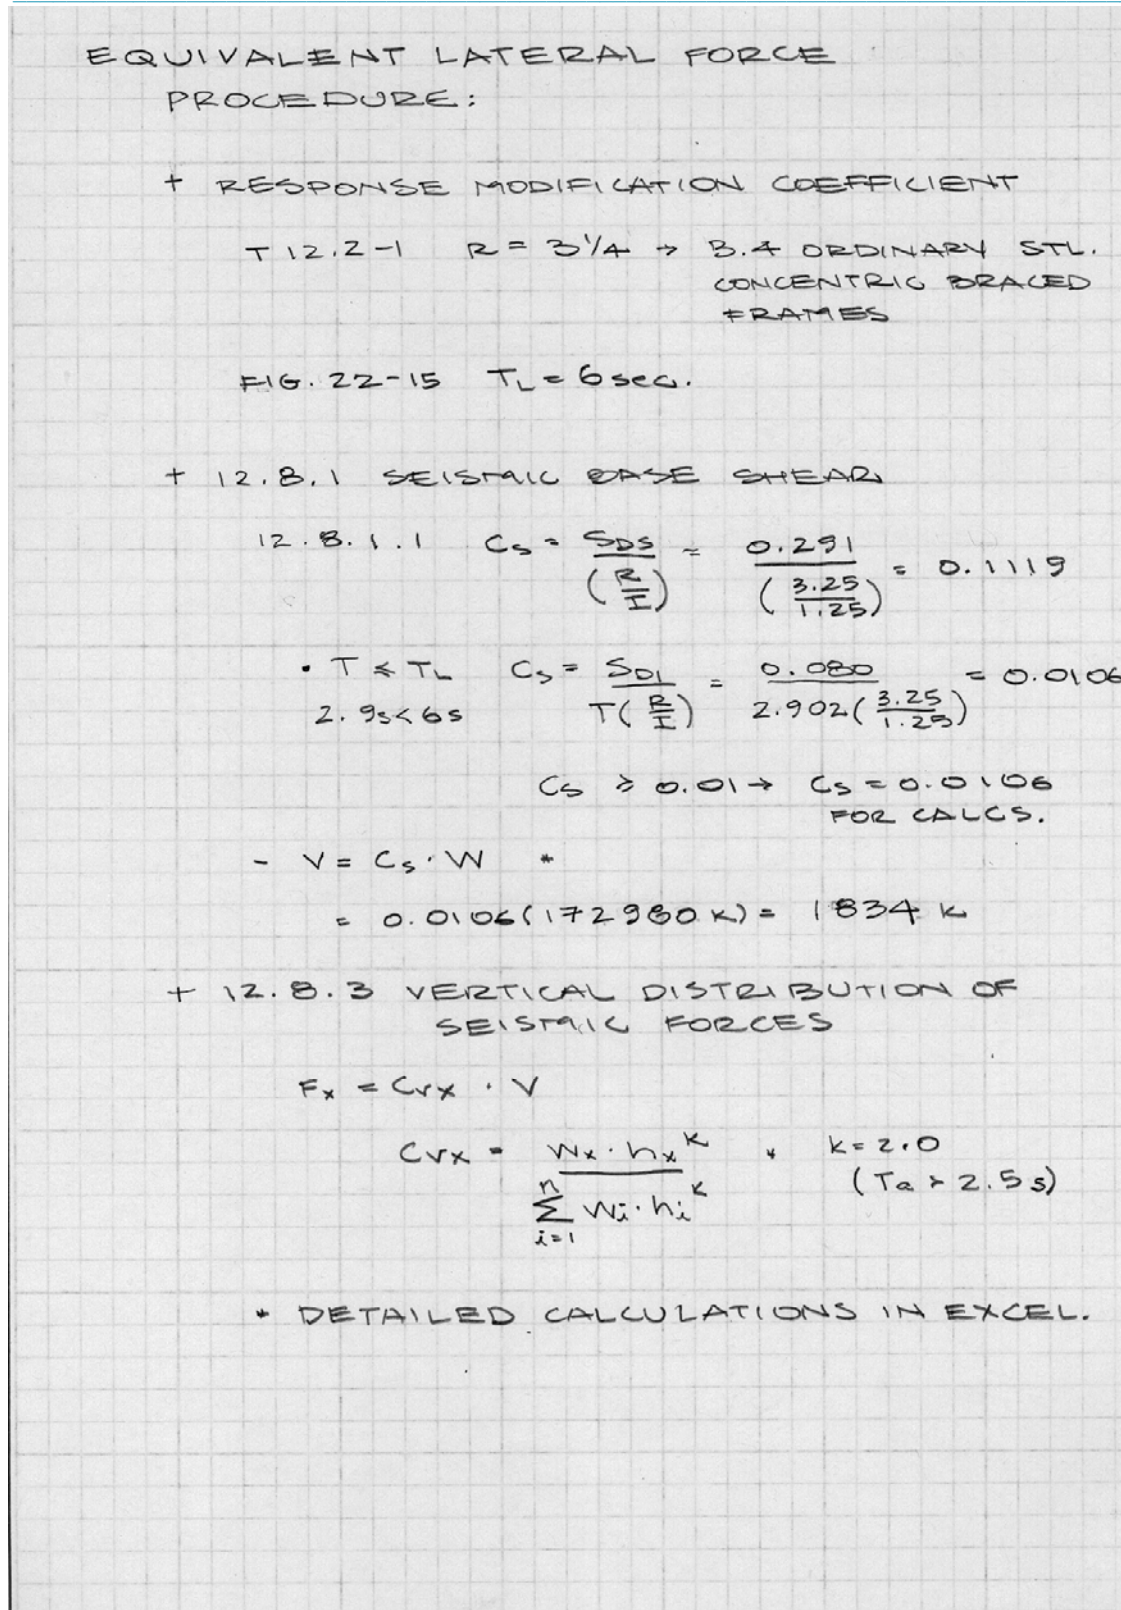 EQUIVALENT LATERAL FORCE
PROCEDURE:
+ RESPONSE MODIFICATION COEFFICIENT
T 12.2-1 R = 3 1/4 → B.4 ORDINARY STL.
CONCENTRIC BRACED
FRAMES
FIG. 22-15 T_L = 6 sec.
+ 12.8.1 SEISMIC BASE SHEAR
12.8.1.1 C_s = S_DS / (R/I) = 0.291 / (3.25/1.25) = 0.1119
• T ≤ T_L C_s = S_D1 / T(R/I) = 0.080 / 2.902(3.25/1.25) = 0.0106
2.9s < 6s
C_s ≥ 0.01 → C_s = 0.0106
FOR CALCS.
- V = C_s · W *
= 0.0106(172980 k) = 1834 k
+ 12.8.3 VERTICAL DISTRIBUTION OF
SEISMIC FORCES
F_x = C_vx · V
C_vx = W_x · h_x^k / Σ_{i=1}^{n} W_i · h_i^k * k = 2.0
(Ta > 2.5 s)
* DETAILED CALCULATIONS IN EXCEL.